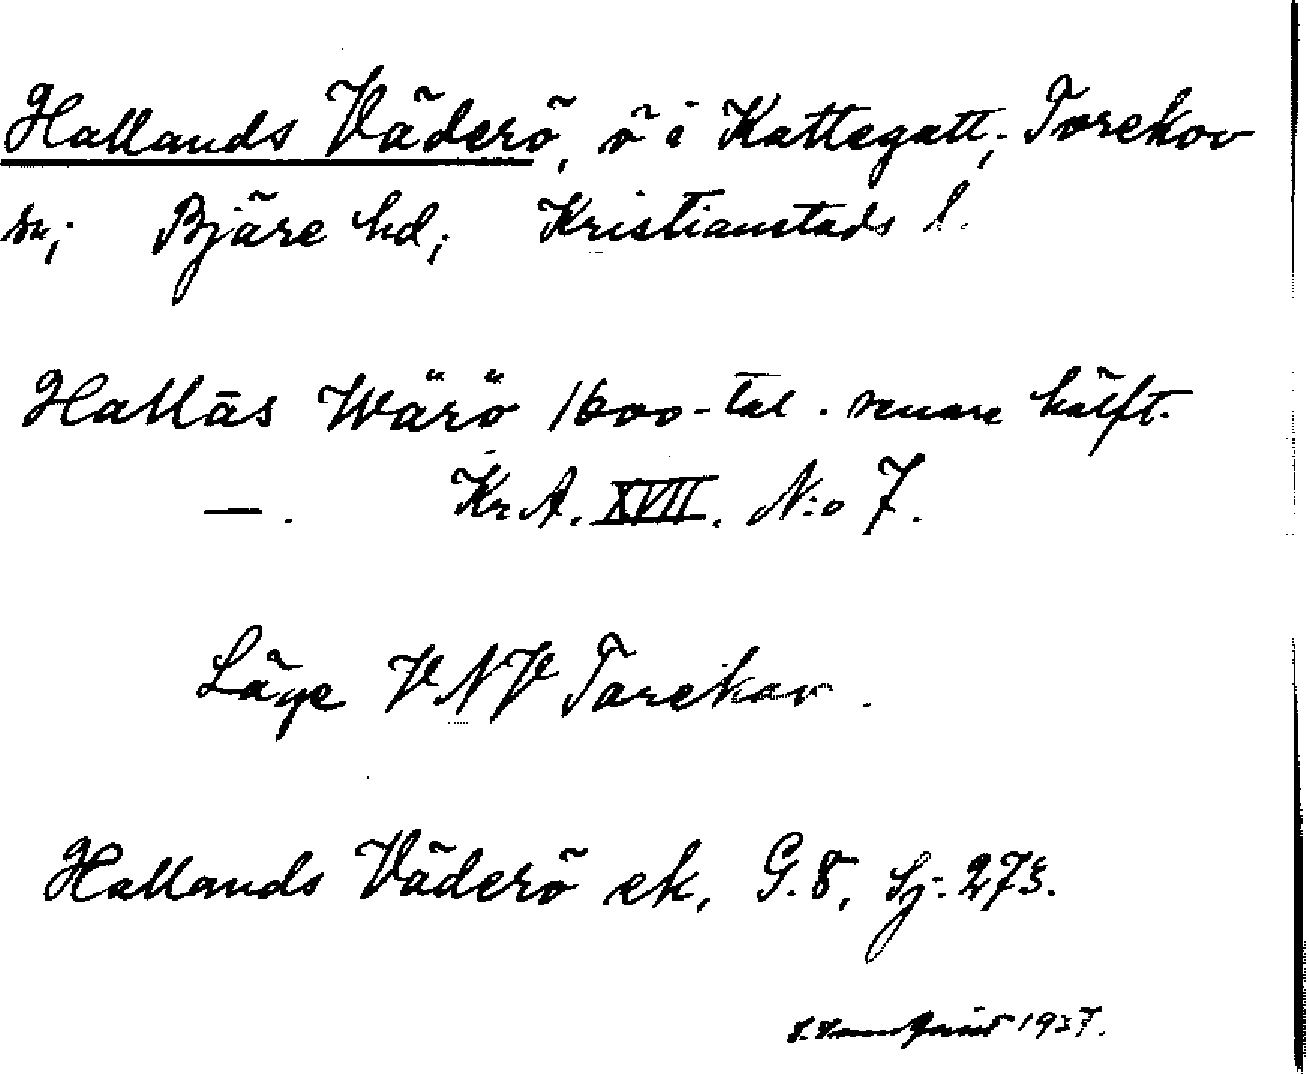 Hallands Väderö, ö i Kattegatt; Torekov
sn; Bjäre hd; Kristianstads l.
Hallās Wärö 1600-tal. senare hälft.
—. Kr.A. XVII. N:o 7.
Läge VNV Torekov.
Hallands Väderö ek, G.8, Sj. 273.
1937.